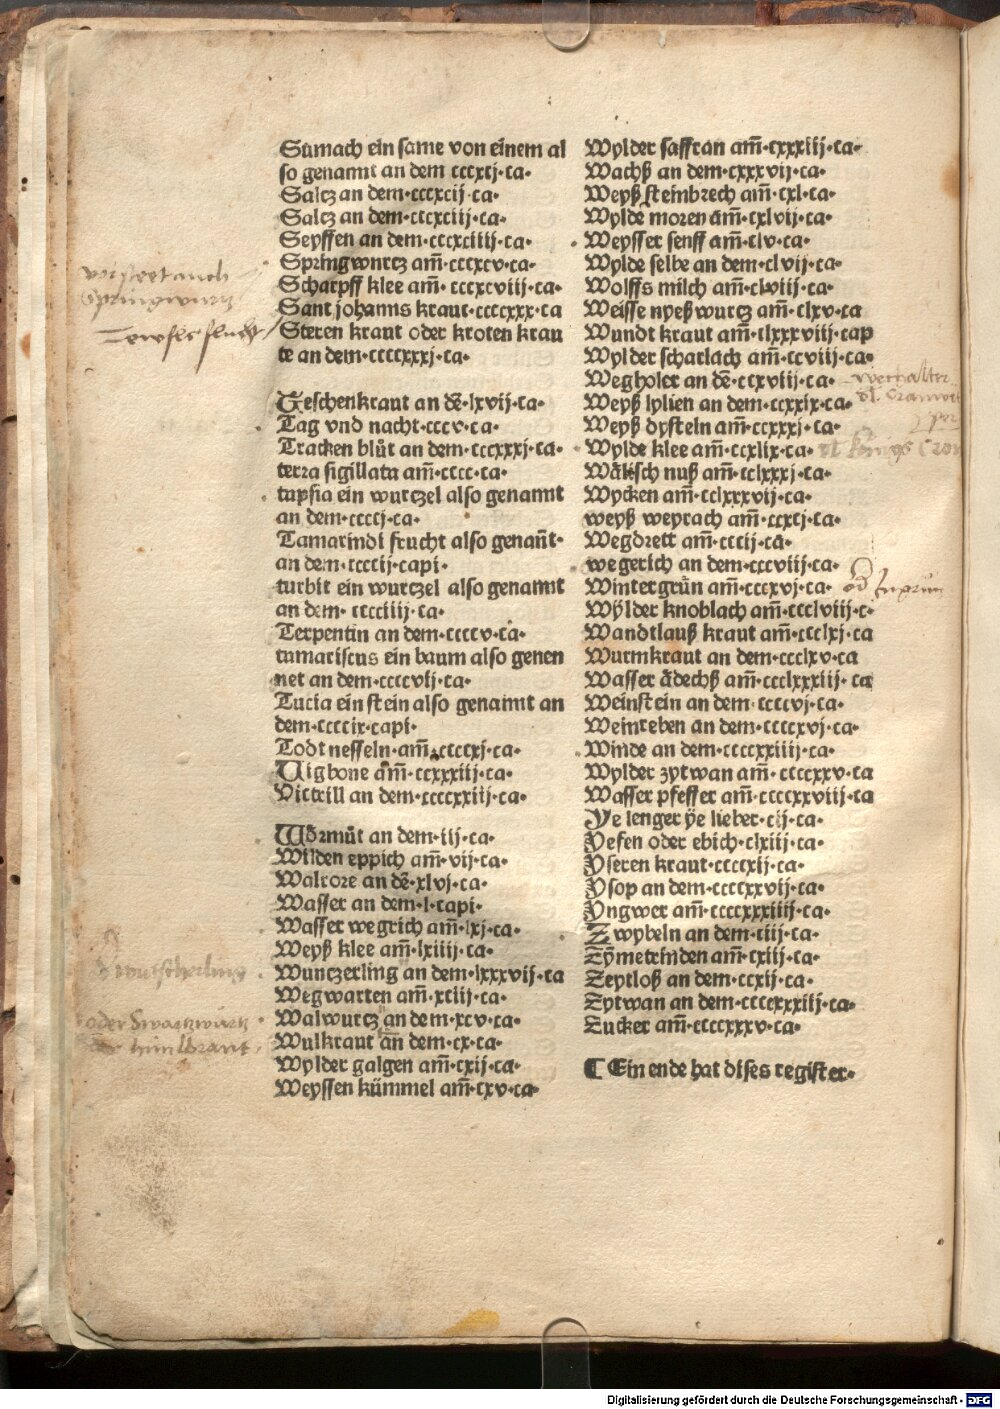 Sumach ein same von einem al
so genamt an dem cccxcj·ca·
Saltz an dem·cccxcij·ca·
Saltz an dem·cccxciij·ca·
Seyffen an dem·cccxciiij·ca·
Springwurtz am̃·cccxcv·ca·
Scharpff klee am̃·cccxcviij·ca·
Sant johanns kraut·ccccxxx·ca
Steren kraut oder kroten krau
te an dem·ccccxxxj·ca·
Teschenkraut an dẽ·lxvij·ca·
Tag vnd nacht·cccv·ca·
Tracken blůt an dem·cccxxxj·ca·
terra sigillata am̃·cccc·ca·
tapsia ein wurtzel also genamt
an dem·ccccj·ca·
Tamarindi frucht also genañt·
an dem·ccccij·capi·
turbit ein wurtzel also genamt
an dem·cccciiij·ca·
Terpentin an dem·ccccv·ca·
tamariscus ein baum also genen
net an dem·ccccvij·ca·
Tucia ein stein also genamt an
dem·ccccix·capi·
Todt nesseln·am̃·ccccxj·ca·
Vigbone am̃·ccxxxiij·ca·
Victrill an dem·ccccxxiij·ca·
Wörmůt an dem·iij·ca·
Wilden eppich am̃·vij·ca·
Walrore an dẽ·xlvj·ca·
Wasser an dem·l·capi·
Wasser wegrich am̃·lxj·ca·
Weyß klee am̃·lxiiij·ca·
Wuntzerling an dem·lxxxvij·ca
Wegwarten am̃·xciij·ca·
Walwurtz an dem·xcv·ca·
Wulkraut an dem·cx·ca·
Wylder galgen am̃·cxij·ca·
Weyssen kümmel am̃·cxv·ca·
Wylder saffran am̃·cxxxiij·ca·
Wachß an dem·cxxxvij·ca·
Weyß steinbrech am̃·cxl·ca·
Wylde moren am̃·cxlvij·ca·
Weysser senff am̃·clv·ca·
Wylde selbe an dem·clvij·ca·
Wolffs milch am̃·clviij·ca·
Weisse nyeßwurtz am̃·clxv·ca
Wundt kraut am̃·clxxxviij·cap
Wylder scharlach am̃·ccviij·ca·
Wegholer an dẽ·ccxviij·ca·
Weyß lylien an dem·ccxxix·ca·
Weyß dysteln am̃·ccxxxj·ca·
Wylde klee am̃·ccxlix·ca·
Wälisch nuß am̃·cclxxxj·ca·
Wycken am̃·cclxxxvij·ca·
weyß weyrach am̃·ccxcj·ca·
Wegdrett am̃·cccij·ca·
wegerich an dem·cccviij·ca·
Wintergrün am̃·cccxvj·ca·
Wylder knoblach am̃·ccclviij·c·
Wandtlauß kraut am̃·ccclxj·ca
Wurmkraut an dem·ccclxv·ca
Wasser ädechß am̃·ccclxxxiij·ca
Weinstein an dem·ccccvj·ca·
Weinreben an dem·ccccxvj·ca·
Winde an dem·ccccxxiiij·ca·
Wylder zytwan am̃·ccccxxv·ca
Wasser pfeffer am̃·ccccxxviij·ca
Ye lenger ÿe lieber·cij·ca·
Yefen oder ebich·clxiij·ca·
Yseren kraut·ccccxij·ca·
Ysop an dem·ccccxxvij·ca·
Yngwer am̃·ccccxxxiiij·ca·
Zwybeln an dem·ciij·ca·
Zÿmetrinden am̃·cxiij·ca·
Zeytloß an dem·ccxij·ca·
Zytwan an dem·ccccxxxiij·ca·
Zucker am̃·ccccxxxv·ca·
¶ Ein ende hat dises register·
Springwurtz
oder Swartzwurtz
Digitalisierung gefördert durch die Deutsche Forschungsgemeinschaft - DFG